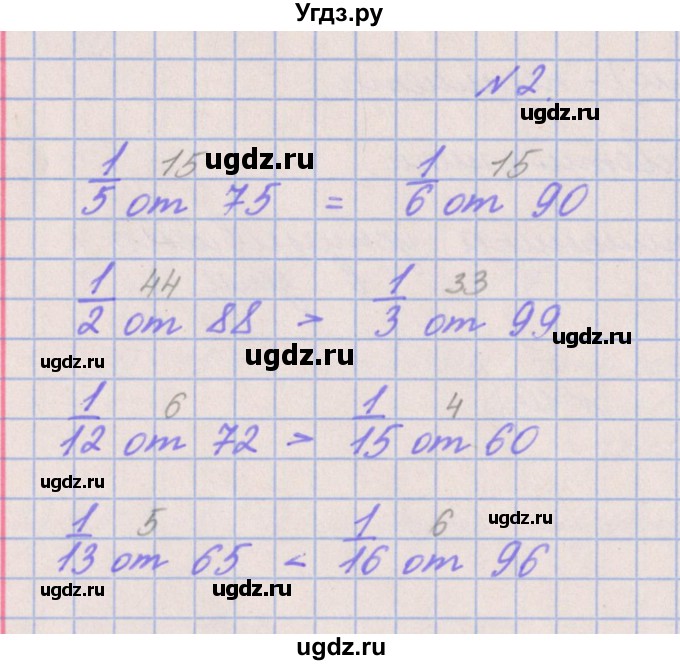 Угдз.ру
N 2.
ugdz.ru
15 ugdz.ru 15
1/5 от 75 = 1/6 от 90
44 33
1/2 от 88 > 1/3 от 99
ugdz.ru ugdz.ru ugdz.ru
6 4
1/12 от 72 > 1/15 от 60
ugdz.ru ugdz.ru
5 6 ugdz.ru
1/13 от 65 < 1/16 от 96
ugdz.ru ugdz.ru ugdz.ru
ugdz.ru